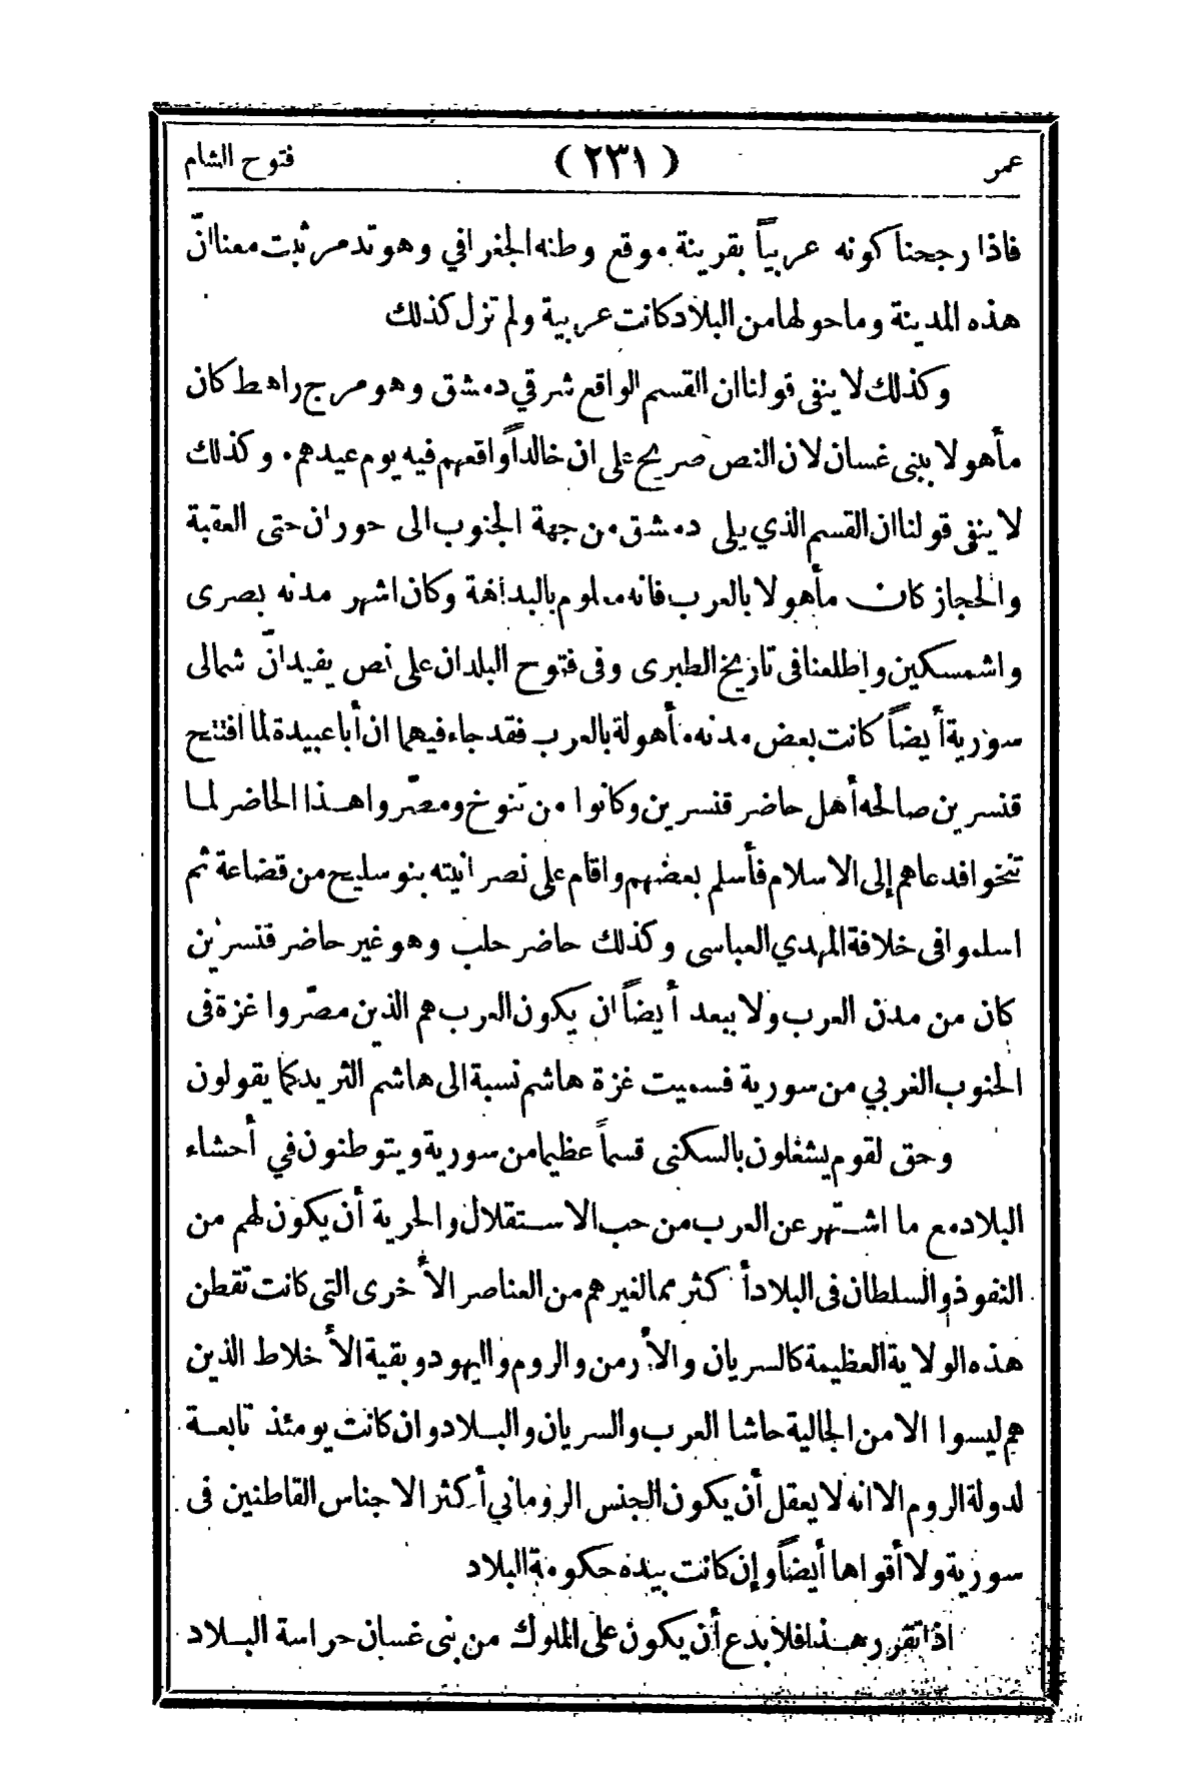 عمر (٢٣١) فتوح الشام
فاذا رجحنا كونه عربياً بقرينة موقع وطنه الجغرافي وهو تدمر ثبت معنا انّ
هذه المدينة وما حولها من البلاد كانت عربية ولم تزل كذلك
وكذلك لا ينفى قولنا ان القسم الواقع شرقي دمشق وهو مرج راهط كان
مأهولا ببنى غسان لان النص صريح على ان خالداً واقعهم فيه يوم عيدهم. وكذلك
لا ينفى قولنا ان القسم الذي يلى دمشق من جهة الجنوب الى حوران حتى العقبة
والحجاز كان مأهولا بالعرب فانه معلوم بالبداهة وكان اشهر مدنه بصرى
واشمسكين واطلعنا فى تاريخ الطبرى وفى فتوح البلدان على نص يفيد انّ شمالى
سورية أيضاً كانت بعض مدنه مأهولة بالعرب فقد جاء فيهما ان أبا عبيدة لما افتتح
قنسرين صالحه أهل حاضر قنسرين وكانوا من تنوخ ومصّروا هذا الحاضر لما
تنخوا فدعاهم إلى الاسلام فأسلم بعضهم واقام على نصرانيته بنو سليح من قضاعة ثم
اسلموا فى خلافة المهدي العباسى وكذلك حاضر حلب وهو غير حاضر قنسرين
كان من مدن العرب ولا يبعد أيضاً ان يكون العرب هم الذين مصّروا غزة فى
الجنوب الغربي من سورية فسميت غزة هاشم نسبة الى هاشم الثريد كما يقولون
وحق لقوم يشغلون بالسكنى قسماً عظيما من سورية ويتوطنون في أحشاء
البلاد مع ما اشتهر عن العرب من حب الاستقلال والحرية أن يكون لهم من
النفوذ والسلطان فى البلاد أكثر مما لغيرهم من العناصر الأخرى التى كانت تقطن
هذه الولاية العظيمة كالسريان والأرمن والروم واليهود وبقية الأخلاط الذين
هم ليسوا الا من الجالية حاشا العرب والسريان والبلاد وان كانت يومئذ تابعة
لدولة الروم الا انه لا يعقل أن يكون الجنس الروماني أكثر الاجناس القاطنين فى
سورية ولا أقواها أيضاً وإن كانت بيده حكومة البلاد
اذا تقرر هذا فلا بدع أن يكون على الملوك من بنى غسان حراسة البلاد